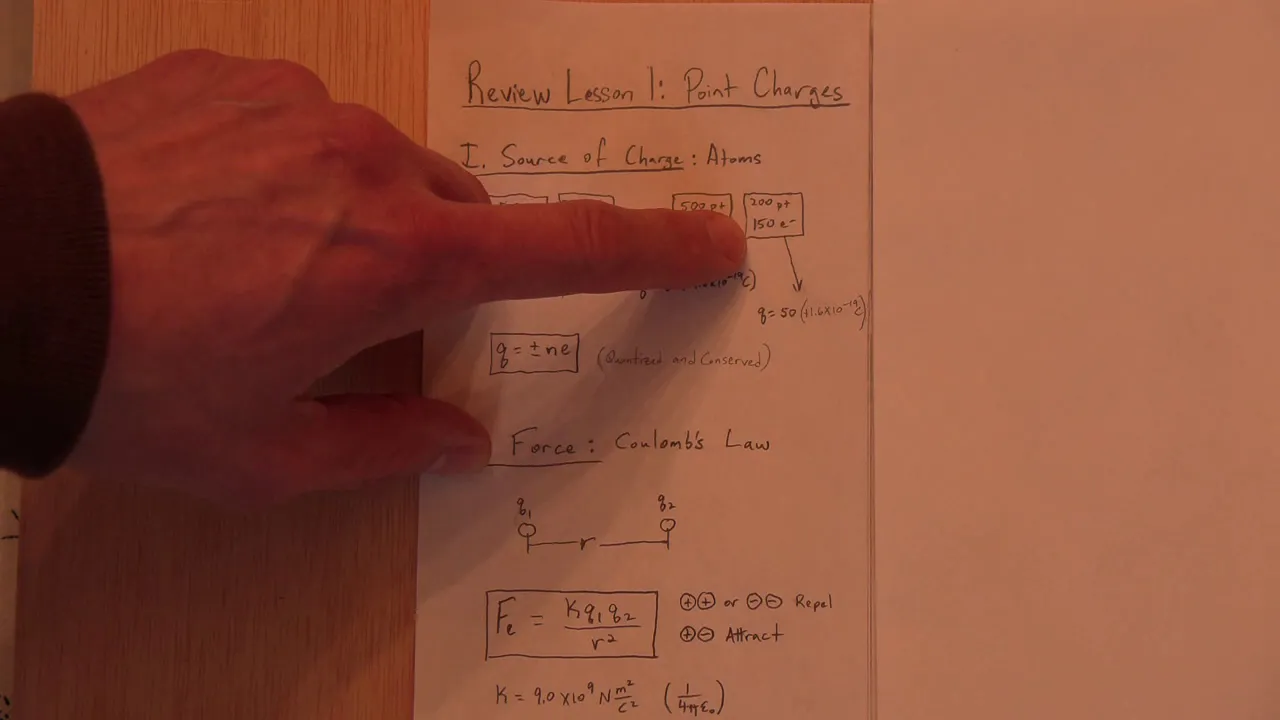 Review Lesson 1: Point Charges
I. Source of Charge: Atoms
500 p+
200 p+
150 e-
q = 50 (+1.6x10^-19 C)
q = ± n e (Quantized and Conserved)
Force: Coulomb's Law
q1 q2
r
Fe = K q1 q2 / r^2
⊕⊕ or ⊖⊖ Repel
⊕⊖ Attract
K = 9.0 x 10^9 N m^2/C^2 (1/4πε0)